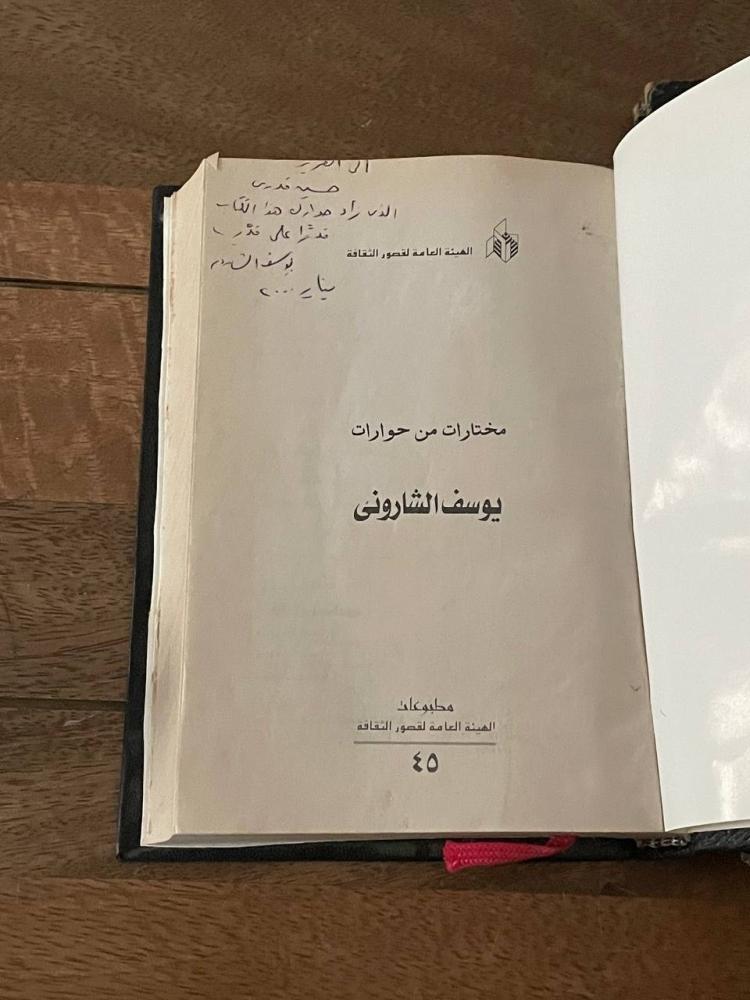 الى العزيز
حسين قدرى
الذى زاد حوارك هذا الكتاب
قدرًا على قدر
يوسف الشارونى
يناير ٢٠٠٠
الهيئة العامة لقصور الثقافة
مختارات من حوارات
يوسف الشارونى
مطبوعات
الهيئة العامة لقصور الثقافة
٤٥